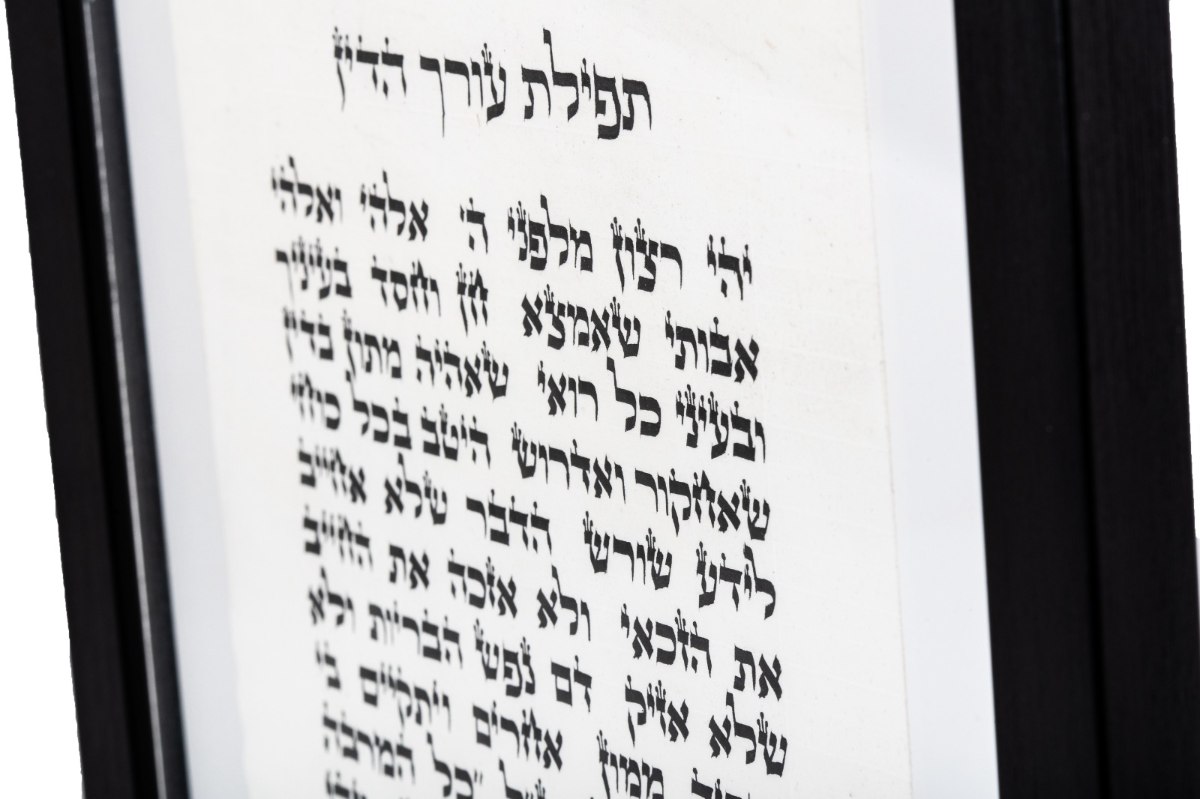 תפילת עורך הדין
יהי רצון מלפני ה' אלהי ואלהי
אבותי שאמצא חן וחסד בעיניך
ובעיני כל רואי שאהיה מתון בדין
שאחקור ואדרוש היטב בכל כוחי
לידע שורש הדבר שלא אחייב
את הזכאי ולא אזכה את החייב
שלא אזיק דם נפש הבריות ולא
ממון אחרים ויתקיים בי
"כל המרבה